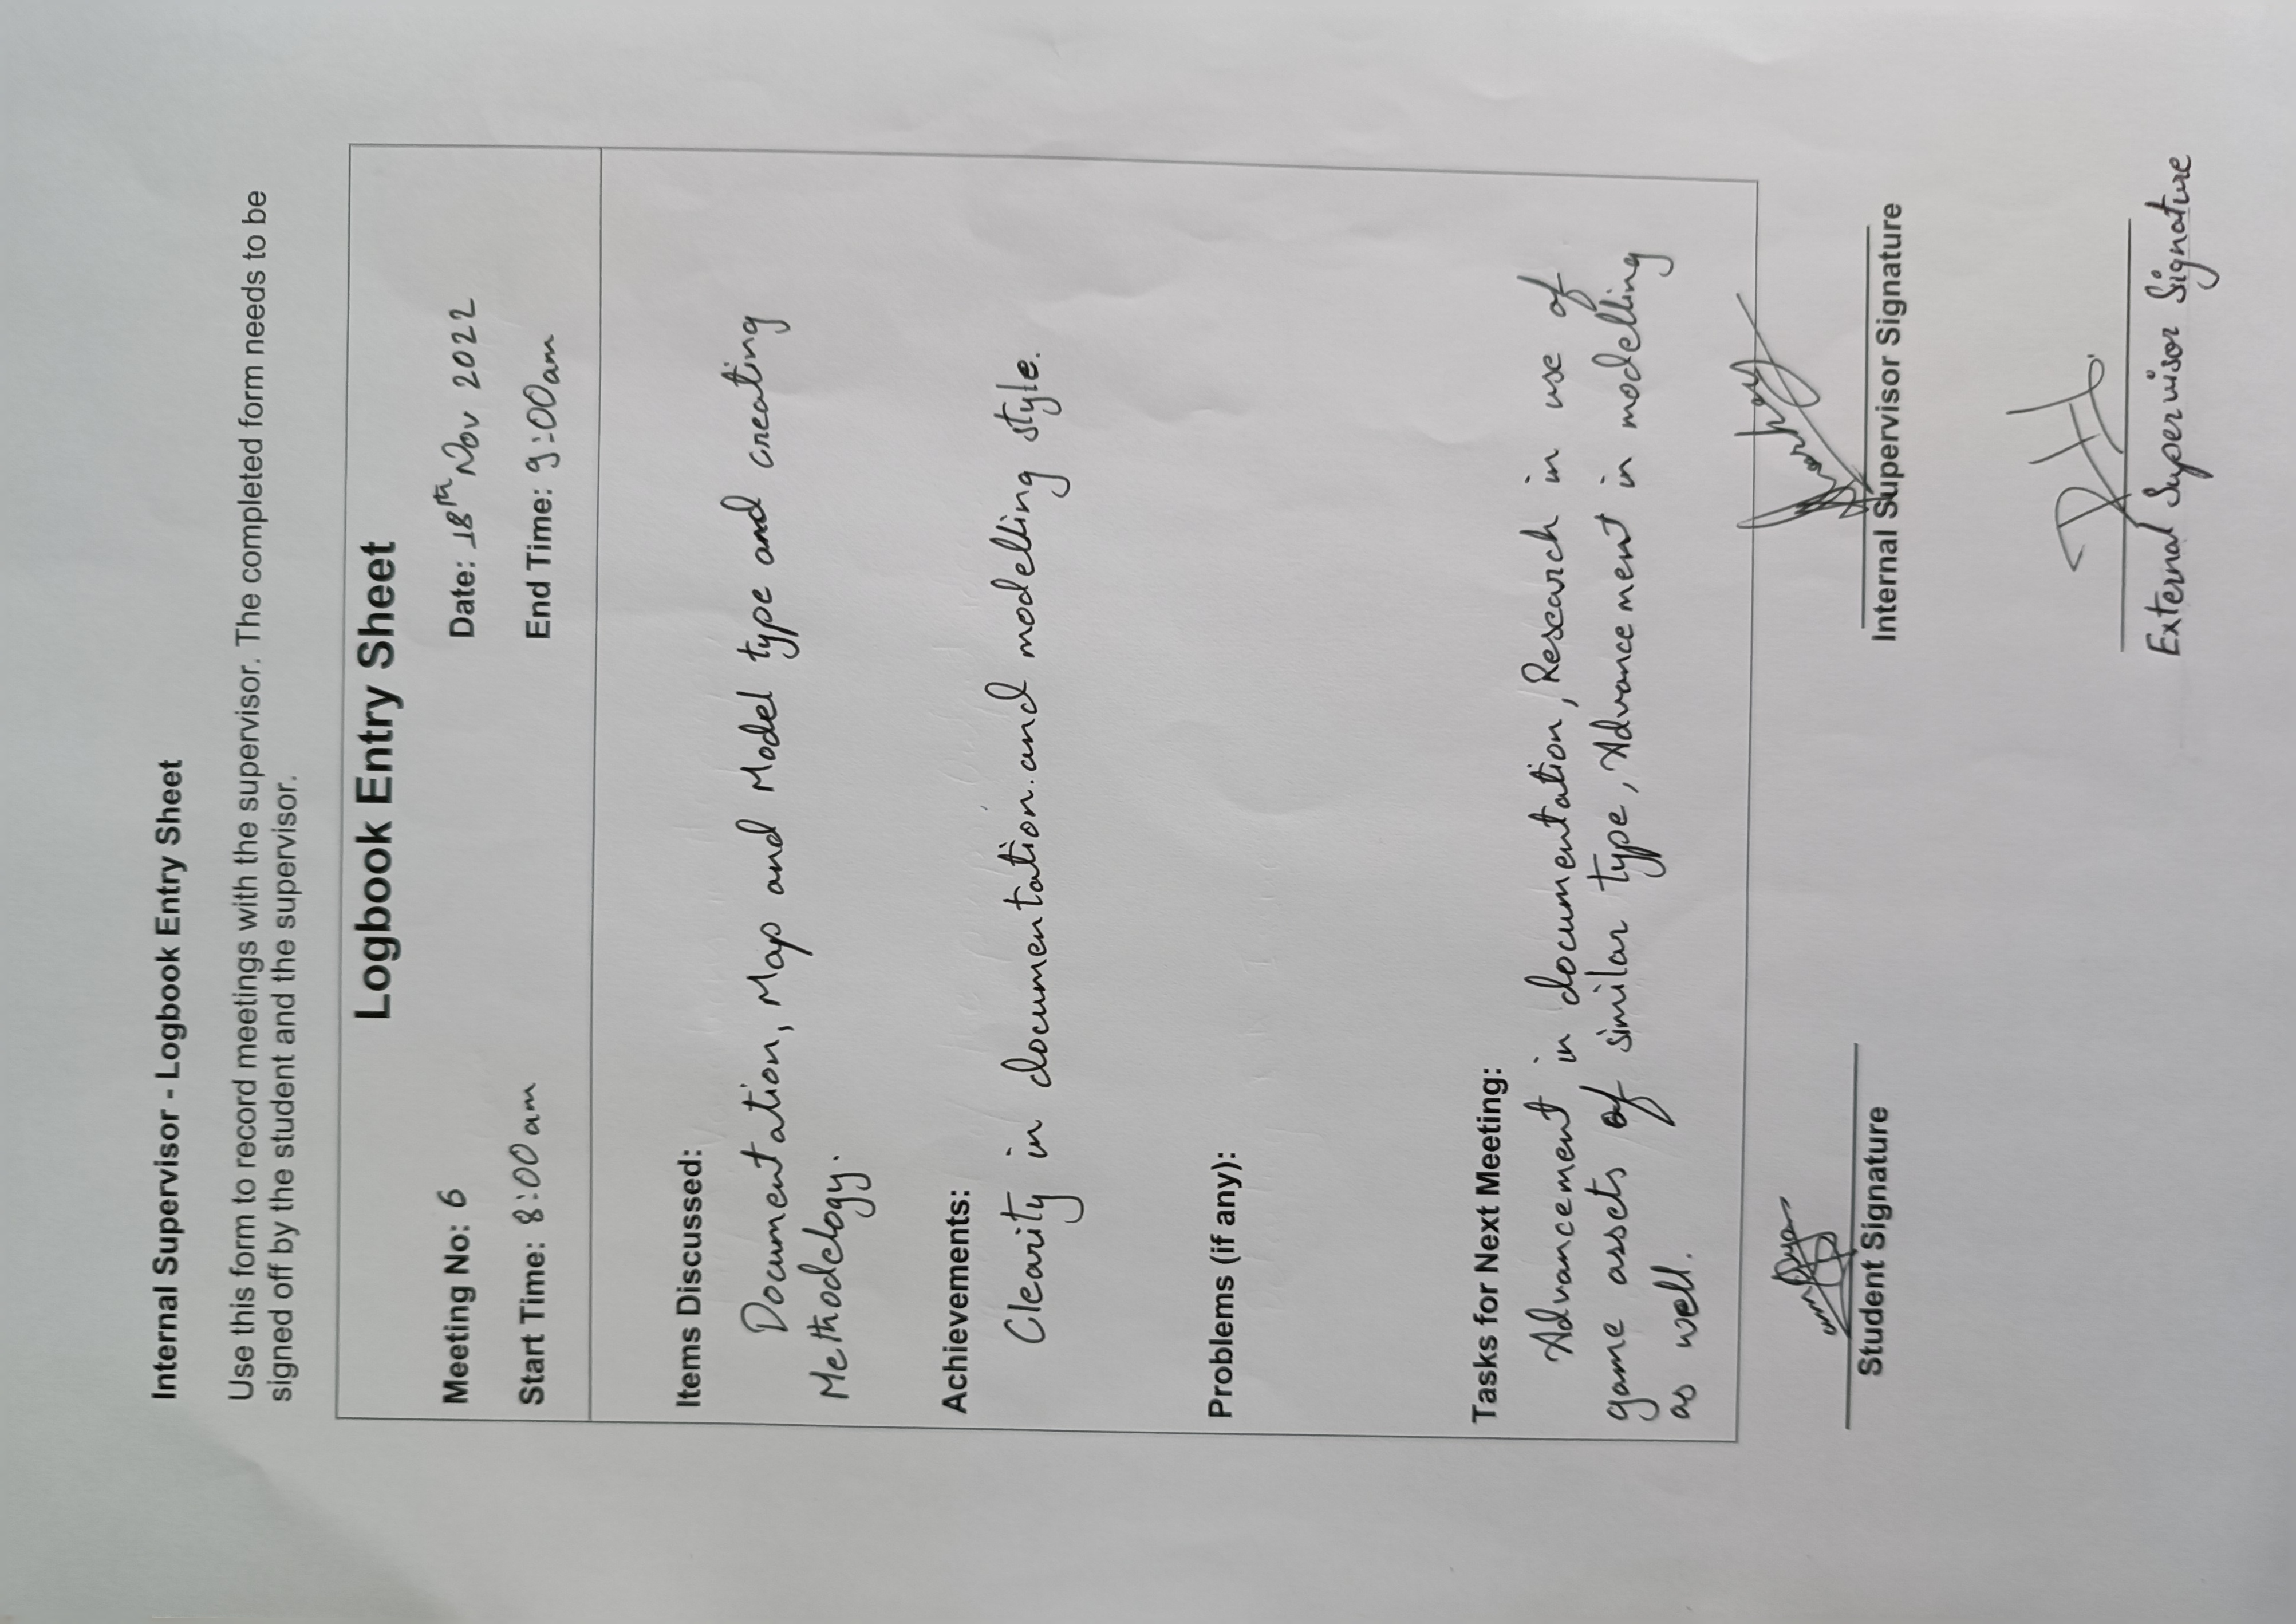 Internal Supervisor - Logbook Entry Sheet
Use this form to record meetings with the supervisor. The completed form needs to be
signed off by the student and the supervisor.
Logbook Entry Sheet
Meeting No: 6 Date: 18th Nov 2022
Start Time: 8:00 am End Time: 9:00am
Items Discussed:
Documentation, Map and Model type and creating
Methodology.
Achievements:
Clearity in documentation.and modelling style.
Problems (if any):
Tasks for Next Meeting:
Advancement in documentation, Research in use of
game assets of similar type, Advancement in modelling
as well.
Student Signature Internal Supervisor Signature
External Supervisor Signature